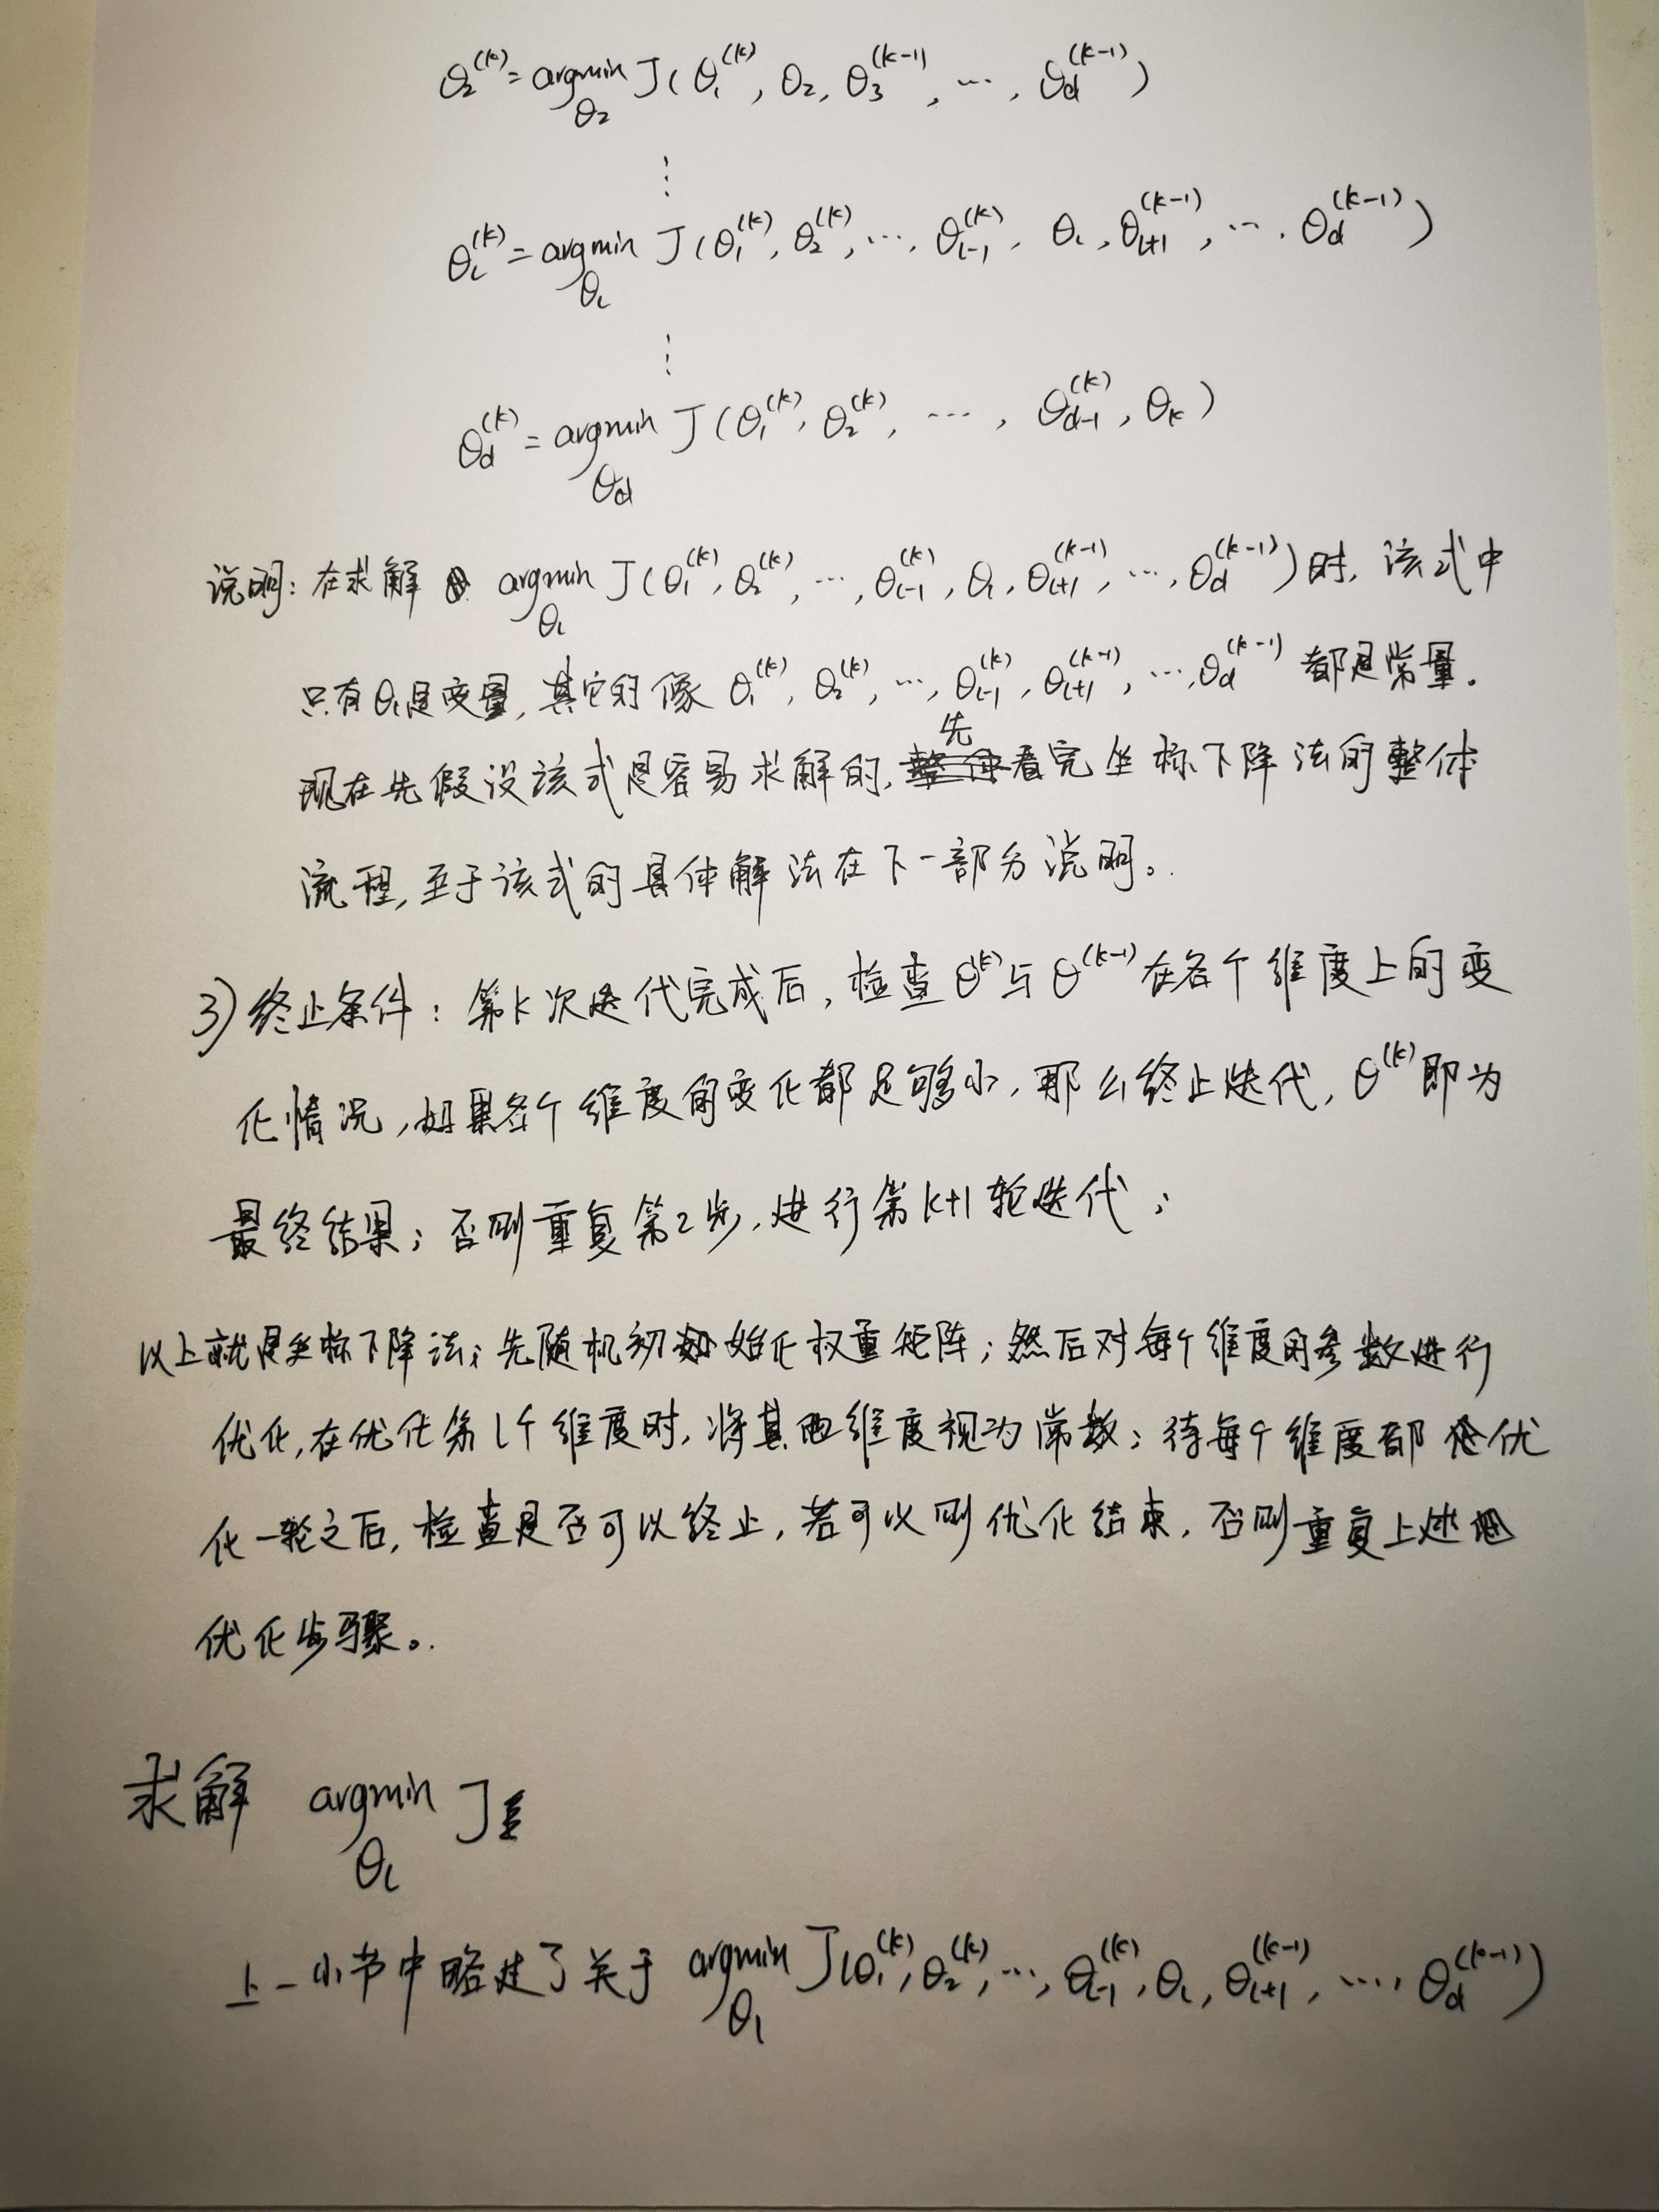 θ₂^(k) = argmin J(θ₁^(k), θ₂, θ₃^(k-1), …, θd^(k-1))
θ₂
⋮
θl^(k) = argmin J(θ₁^(k), θ₂^(k), …, θl-1^(k), θl, θl+1^(k-1), …, θd^(k-1))
θl
⋮
θd^(k) = argmin J(θ₁^(k), θ₂^(k), …, θd-1^(k), θk)
θd
说明: 在求解 argmin J(θ₁^(k), θ₂^(k), …, θl-1^(k), θl, θl+1^(k-1), …, θd^(k-1))时, 该式中
θl
只有θl是变量, 其它的像 θ₁^(k), θ₂^(k), …, θl-1^(k), θl+1^(k-1), …, θd^(k-1) 都是常量.
现在先假设该式是容易求解的, 先看完坐标下降法的整体
流程, 至于该式的具体解法在下一部分说明。
3) 终止条件: 第k次迭代完成后, 检查θ^(k)与θ^(k-1)在各个维度上的变
化情况, 如果各个维度的变化都足够小, 那么终止迭代, θ^(k)即为
最终结果; 否则重复第2步, 进行第k+1轮迭代;
以上就是坐标下降法; 先随机初始化权重矩阵; 然后对每个维度的参数进行
优化, 在优化第l个维度时, 将其他维度视为常数; 待每个维度都优
化一轮之后, 检查是否可以终止, 若可以则优化结束, 否则重复上述
优化步骤。
求解 argmin J
θl
上一小节中略过了关于 argmin J(θ₁^(k), θ₂^(k), …, θl-1^(k), θl, θl+1^(k-1), …, θd^(k-1))
θl